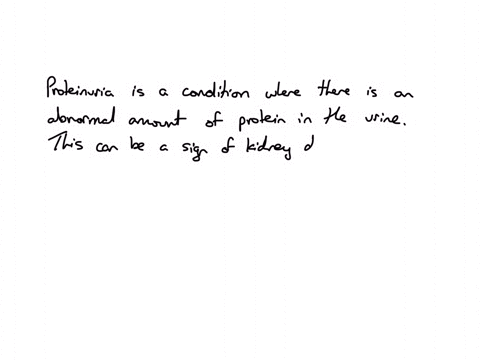 Proteinuria is a condition where there is an
abnormal amount of protein in the urine.
This can be a sign of kidney d